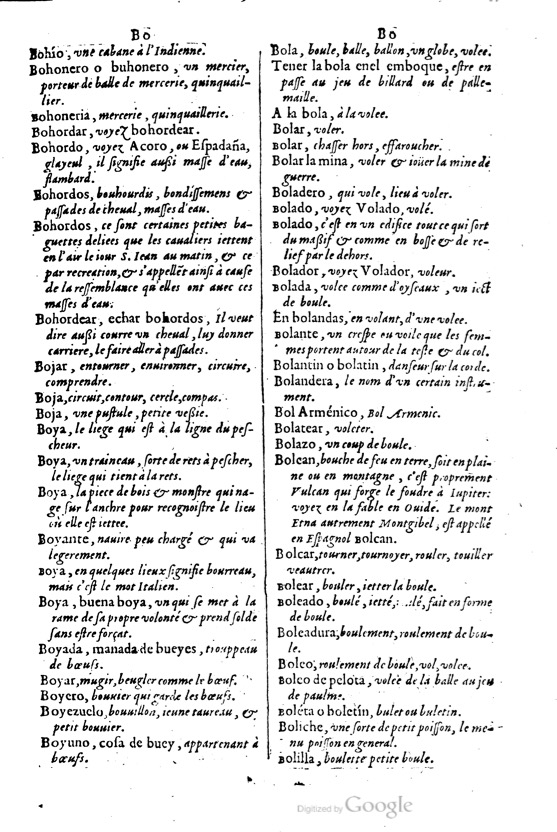 Bo
Bohío, vne cabane à l'Indienne.
Bohonero o buhonero, vn mercier,
porteur de balle de mercerie, quinquail-
lier.
Bohoneria, mercerie, quinquaillerie.
Bohordar, voyez bohordear.
Bohordo, voyez Acoro, ou Espadaña,
glayeul, il signifie außi masse d'eau,
flambard.
Bohordos, bouhourdis, bondissemens &
passades de cheual, masses d'eau.
Bohordos, ce sont certaines petites ba-
guettes deliees que les caualiers iettent
en l'air le iour S. Iean au matin, & ce
par recreation, & s'appellẽt ainsi à cause
de la ressemblance qu'elles ont auec ces
masses d'eau.
Bohordear, echar bohordos, il veut
dire außi courre vn cheual, luy donner
carriere, le faire aller à passades.
Bojar, entourner, enuironner, circuire,
comprendre.
Boja, circuit, contour, cercle, compas.
Boja, vne pustule, petite veßie.
Boya, le liege qui est à la ligne du pes-
cheur.
Boya, vn traineau, sorte de rets à pescher,
le liege qui tient à la rets.
Boya, la piece de bois & monstre qui na-
ge sur l'anchre pour recognoistre le lieu
où elle est iettee.
Boyante, nauire peu chargé & qui va
legerement.
Boya, en quelques lieux signifie bourreau,
mais c'est le mot Italien.
Boya, buena boya, vn qui se met à la
rame de sa propre volonté & prend solde
sans estre forçat.
Boyada, manada de bueyes, trouppeau
de bœufs.
Boyar, mugir, beugler comme le bœuf.
Boyero, bouuier qui garde les bœufs.
Boyezuelo, bouuillon, ieune taureau, &
petit bouuier.
Boyuno, cosa de buey, appartenant à
bœufs.
Bo
Bola, boule, balle, ballon, vn globe, volee.
Tener la bola enel emboque, estre en
passe au jeu de billard ou de palle-
maille.
A la bola, à la volee.
Bolar, voler.
Bolar, chasser hors, effaroucher.
Bolar la mina, voler & ioüer la mine de
guerre.
Boladero, qui vole, lieu à voler.
Bolado, voyez Volado, volé.
Bolado, c'est en vn edifice tout ce qui sort
du maßif & comme en bosse & de re-
lief par le dehors.
Bolador, voyez Volador, voleur.
Bolada, volee comme d'oyseaux, vn iect
de boule.
En bolandas, en volant, d'vne volee.
Bolante, vn crespe ou voile que les fem-
mes portent autour de la teste & du col.
Bolantin o bolatin, danseur sur la corde.
Bolandera, le nom d'vn certain instru-
ment.
Bol Arménico, Bol Armenic.
Bolatear, voleter.
Bolazo, vn coup de boule.
Bolcan, bouche de feu en terre, soit en plai-
ne ou en montagne, c'est proprement
Vulcan qui forge le foudre à Iupiter:
voyez en la fable en Ouide. Le mont
Etna autrement Montgibel, est appellé
en Espagnol Bolcan.
Bolcar, tourner, tournoyer, rouler, touiller
veautrer.
Bolear, bouler, ietter la boule.
Boleado, boulé, ietté, fait en forme
de boule.
Boleadura, boulement, roulement de bou-
le.
Boleo, roulement de boule, vol, volee.
Boleo de pelota, volee de la balle au jeu
de paulme.
Boléta o boletín, bulet ou buletin.
Boliche, vne sorte de petit poisson, le me-
nu poisson en general.
Bolilla, boulette petite boule.
Digitized by Google